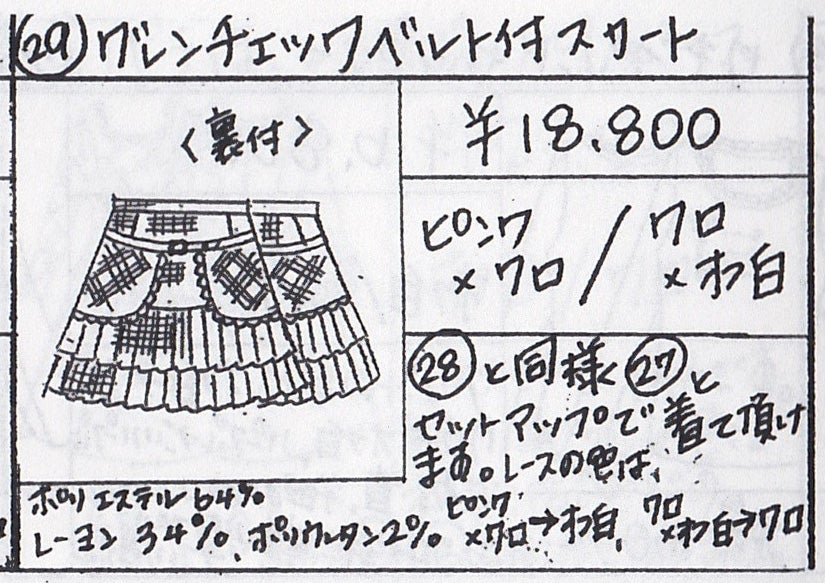 ㉙ グレンチェックベルト付スカート
〈裏付〉
¥18.800
ピンク
×クロ / クロ
×オフ白
㉘と同様く㉗と
セットアップで着て頂け
ます。レースの色は、
ピンク
×クロ→オフ白、クロ
×オフ白→クロ
ポリエステル64%
レーヨン34%、ポリウレタン2%